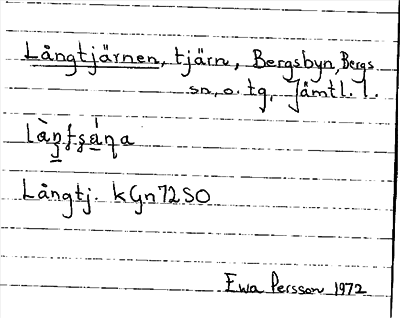 Långtjärnen, tjärn, Bergsbyn, Bergs
sn, o. tg, Jämtl. l.
Långtj. kGn72SO
Ewa Persson 1972